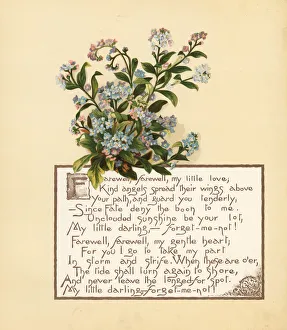 Farewell, farewell, my little love;
Kind angels spread their wings above
Your path, and guard you tenderly,
Since Fate deny the boon to me.
Unclouded sunshine be your lot,
My little darling — forget-me-not!
Farewell, farewell, my gentle heart;
For you I go to take my part
In storm and strife. When these are o'er,
The tide shall turn again to shore,
And never leave the longed-for spot.
My little darling, forget-me-not!